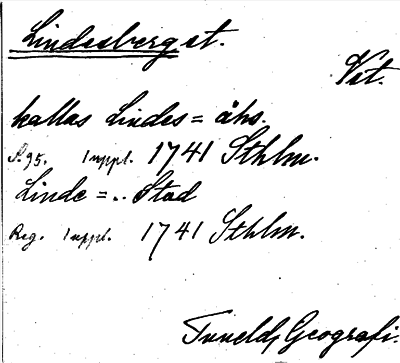 Lindesberg et.
Vst.
kallas Lindes= åhs.
S. 95. Suppl. 1741 Sthlm.
Linde=.. Stad
Reg. Suppl. 1741 Sthlm.
Tuneld, Geografi.